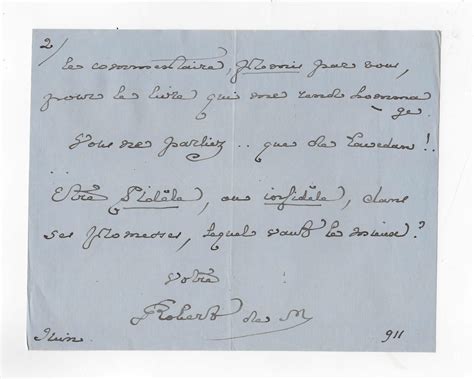 2/
le commentaire, promis par vous,
pour le livre qui me rend homma-
ge.
Vous ne parliez.. que de Lavedan!!
Etre fidèle, ou infidèle, dans
ses promesses, lequel vaut le mieux?
Votre
Robert de M
Juin. 911